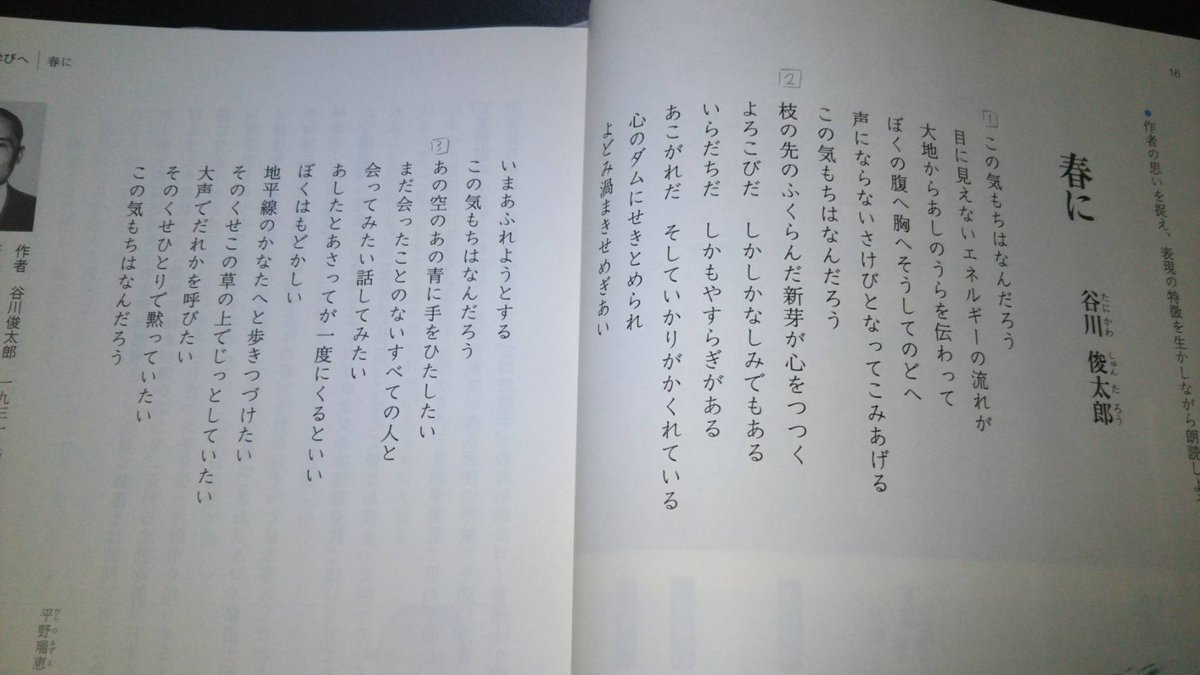 16
作者の思いを捉え、表現の特徴を生かしながら朗読しよ
春に
谷川 俊太郎
たにかわ しゅんたろう
1 この気もちはなんだろう
目に見えないエネルギーの流れが
大地からあしのうらを伝わって
ぼくの腹へ胸へそうしてのどへ
声にならないさけびとなってこみあげる
この気もちはなんだろう
2 枝の先のふくらんだ新芽が心をつつく
よろこびだ しかしかなしみでもある
いらだちだ しかもやすらぎがある
あこがれだ そしていかりがかくれている
心のダムにせきとめられ
よどみ渦まきせめぎあい
いまあふれようとする
この気もちはなんだろう
3 あの空のあの青に手をひたしたい
まだ会ったことのないすべての人と
会ってみたい話してみたい
あしたとあさってが一度にくるといい
ぼくはもどかしい
地平線のかなたへと歩きつづけたい
そのくせこの草の上でじっとしていたい
大声でだれかを呼びたい
そのくせひとりで黙っていたい
この気もちはなんだろう
びへ｜春に
作者 谷川俊太郎 一九三一
平野瑞恵
ひらのみずえ